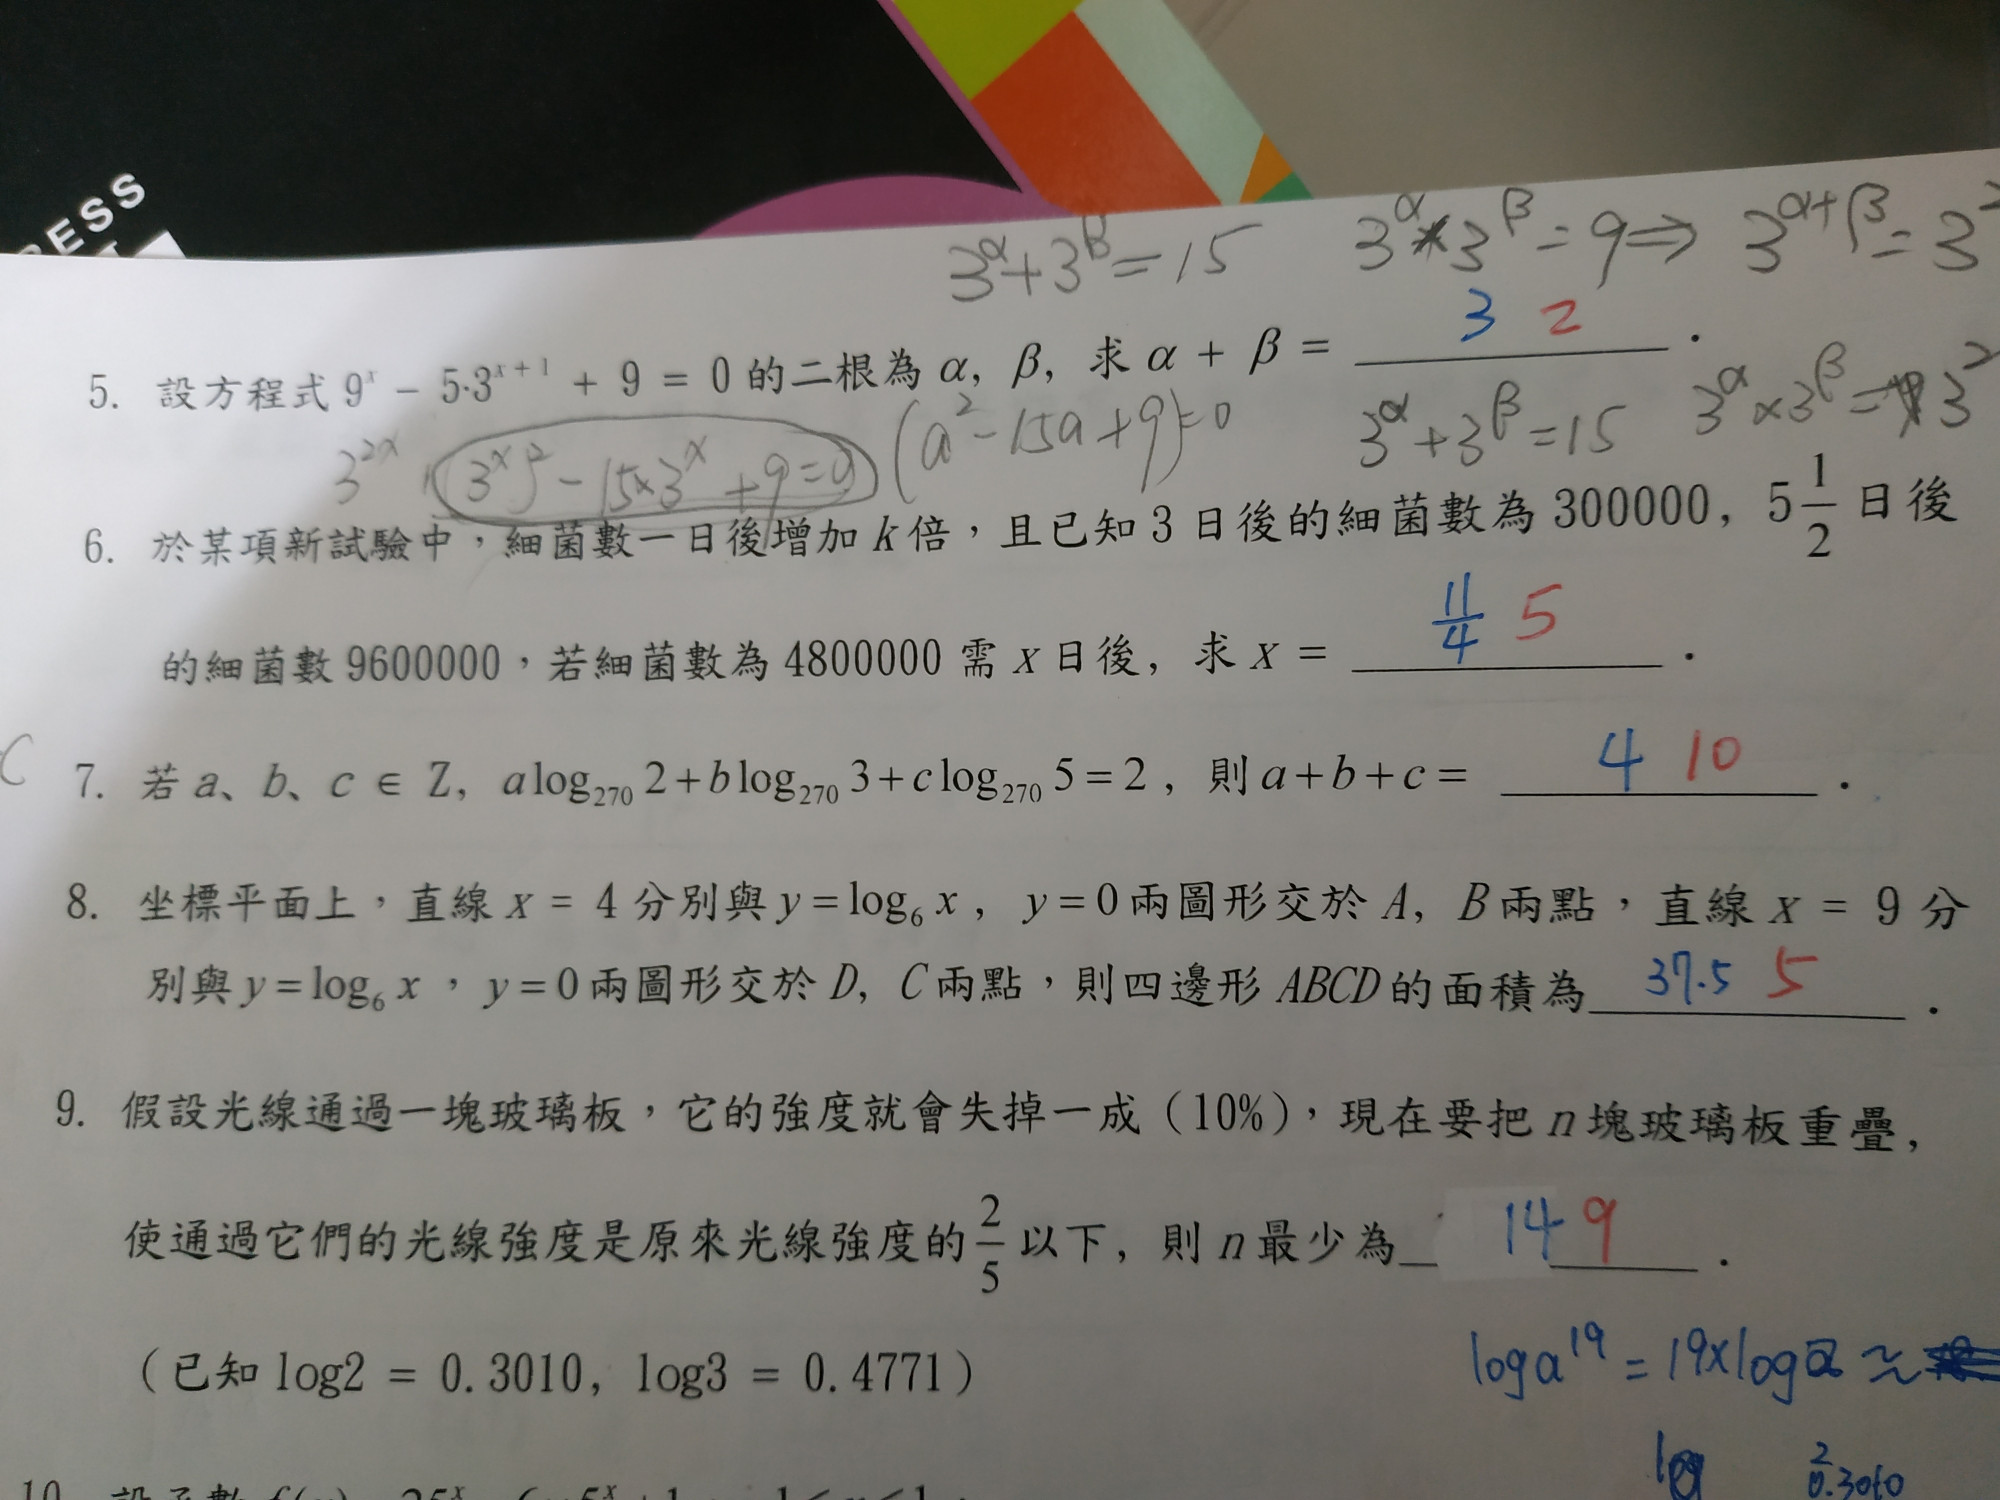 ESS
3^α+3^β=15 3^α×3^β=9⇒ 3^{α+β}=3^2
5. 設方程式 9^x − 5·3^{x+1} + 9 = 0 的二根為 α, β, 求 α + β = 3 2 .
3^{2x} (3^x)^2 − 15×3^x + 9 = 0 (a^2−15a+9)=0 3^α+3^β=15 3^α×3^β=3^2
6. 於某項新試驗中，細菌數一日後增加 k 倍，且已知 3 日後的細菌數為 300000, 5 1/2 日後
的細菌數 9600000，若細菌數為 4800000 需 x 日後, 求 x = 11/4 5 .
C
7. 若 a、b、c ∈ Z, a log_{270} 2 + b log_{270} 3 + c log_{270} 5 = 2, 則 a + b + c = 4 10 .
8. 坐標平面上，直線 x = 4 分別與 y = log_6 x, y = 0 兩圖形交於 A, B 兩點，直線 x = 9 分
別與 y = log_6 x，y = 0 兩圖形交於 D, C 兩點，則四邊形 ABCD 的面積為 37.5 5 .
9. 假設光線通過一塊玻璃板，它的強度就會失掉一成 (10%)，現在要把 n 塊玻璃板重疊,
使通過它們的光線強度是原來光線強度的 2/5 以下, 則 n 最少為 14 9 .
(已知 log2 = 0.3010, log3 = 0.4771)
log a^{19} = 19×log a ≈
log 2
0.3010
10. 設函數